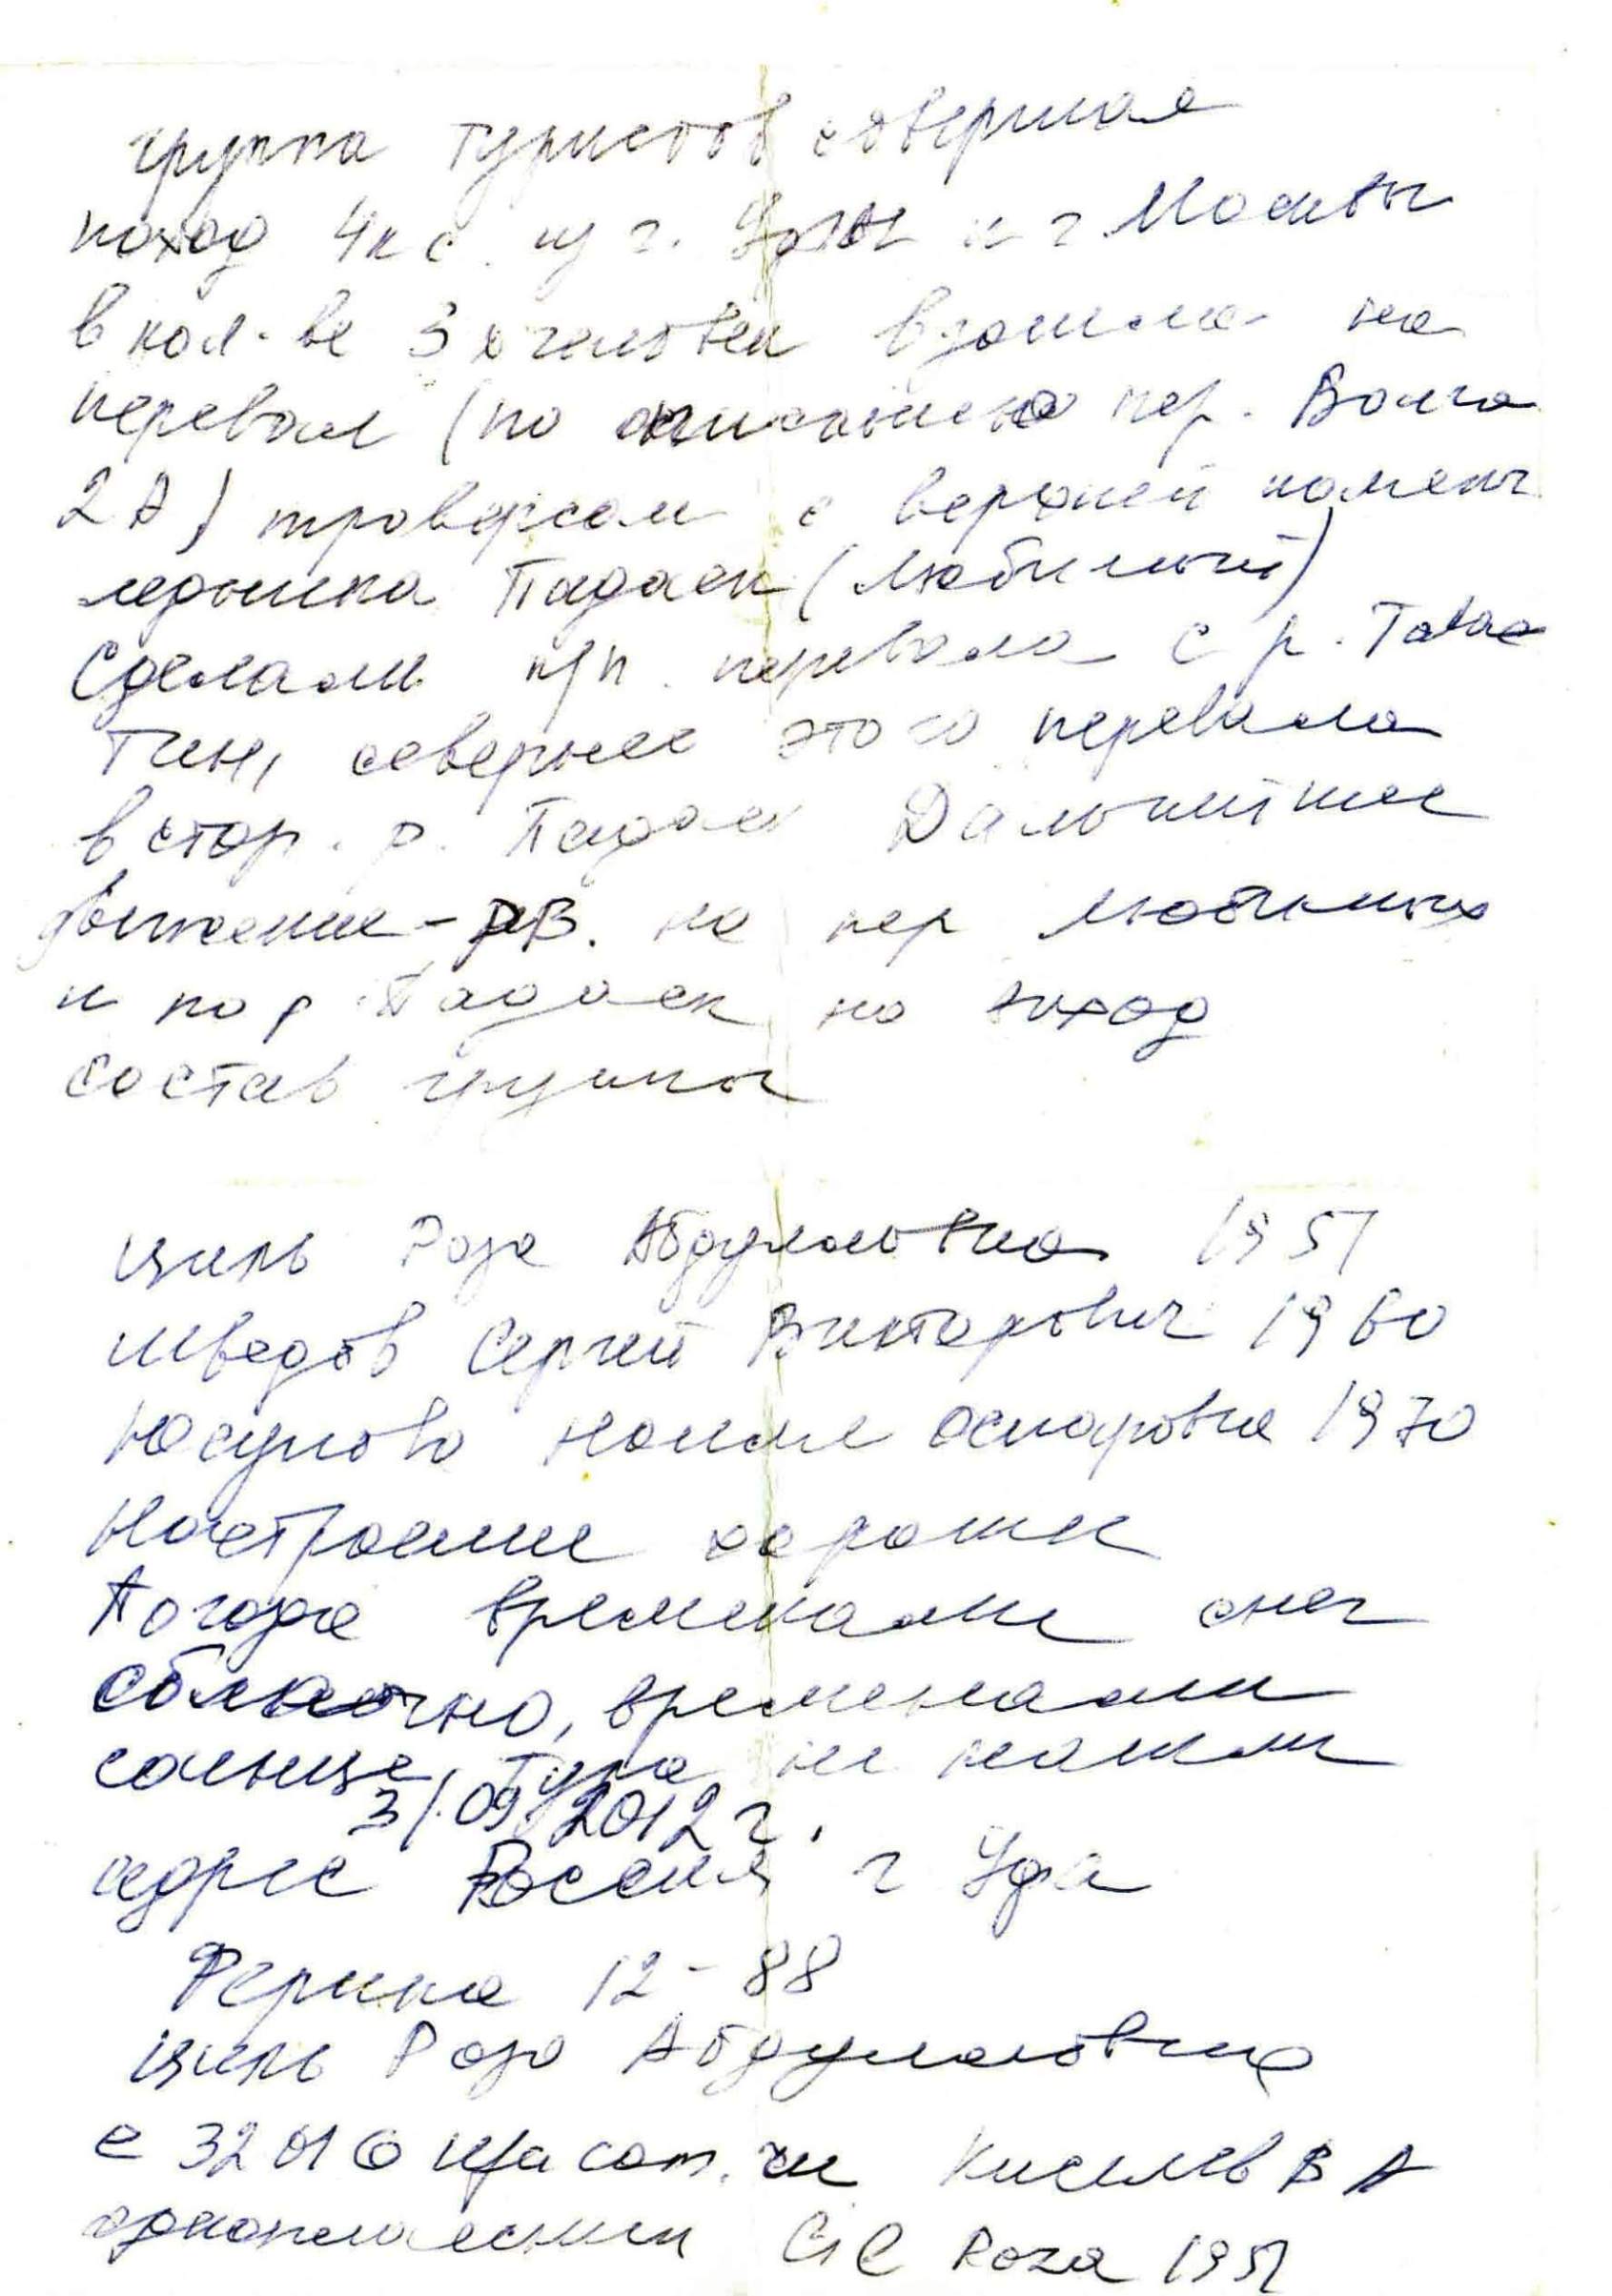 группа туристов совершая
поход 4к с. из г. Уфы и г Москвы
в кол-ве 3х человек взошла на
перевал (по описанию пер. Волга
2А) траверсом с верхней
ледника Тадаек (Любимый)
Сделали п/п. перевала с р.
северней этого перевала
в стор. р. Дальнейшее
движение - на пер Любимых
и по р Тадаек на выход
состав группы
Циль Роза Абдулловна 1951
Шведов Сергей Викторович 1960
Юсупова Наиля Оскаровна 1970
Настроение хорошее
Погода временами снег
облачно, временами
солнце, Тура не нашли
31.09 2012 г.
адрес Россия г Уфа
Ферина 12-88
Циль Роза Абдулловна
e 32 01 @ Киселев В А
одноклассники Cil Roza 1951